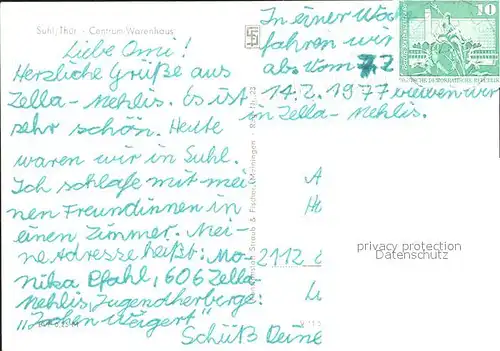 Suhl/Thür. - Centrum-Warenhaus
Liebe Omi!
Herzliche Grüße aus
Zella-Mehlis. Es ist
sehr schön. Heute
waren wir in Suhl.
Ich schlafe mit mei-
nen Freundinnen in
einen Zimmer. Mei-
ne Adresse heißt: Mo-
nika Pfahl, 606 Zella-
Mehlis, Jugendherberge:
"Jochen Weigert"
Schüß Deine
In einer Woche
fahren wir
ab. Vom
14.2.1977 bleiben wir
in Zella-Mehlis.
10
DEUTSCHE DEMOKRATISCHE REPUBLIK
Straub & Fischer, Meiningen
2112
privacy protection
Datenschutz